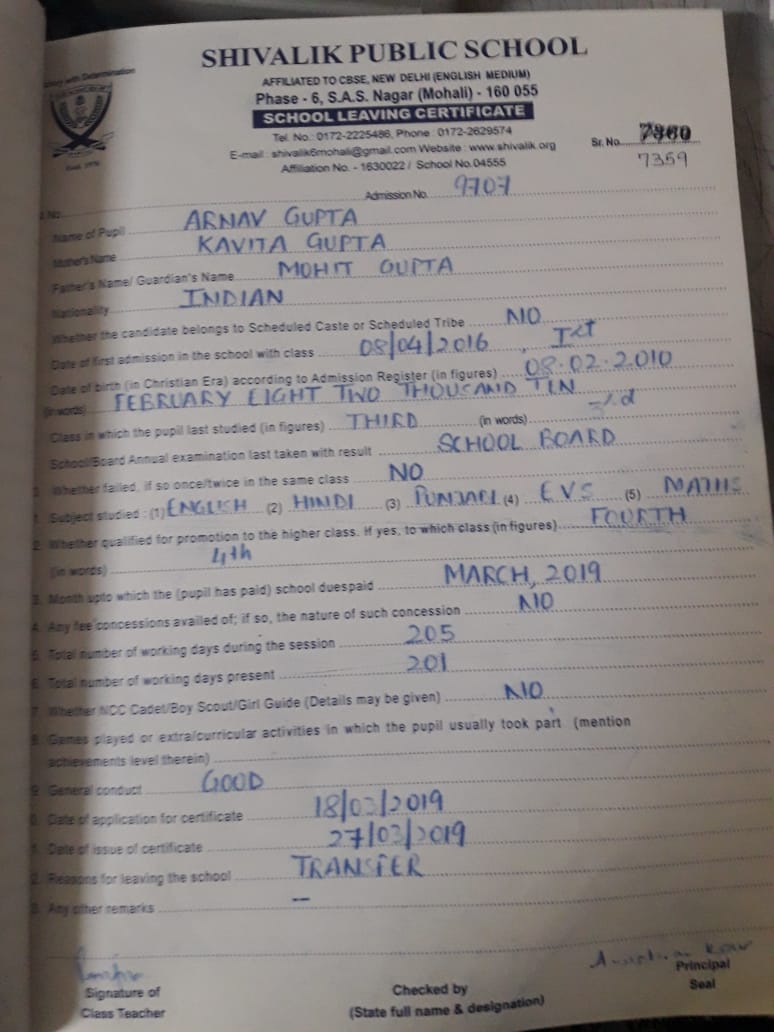 SHIVALIK PUBLIC SCHOOL
AFFILIATED TO CBSE, NEW DELHI (ENGLISH MEDIUM)
Phase - 6, S.A.S. Nagar (Mohali) - 160 055
SCHOOL LEAVING CERTIFICATE
Tel. No.: 0172-2225486, Phone : 0172-2629574
E-mail : shivalik6mohali@gmail.com Website : www.shivalik.org
Affiliation No. - 1630022 / School No.04555
Sr. No.
7359
Admission No. 9707
Name of Pupil ARNAV GUPTA
Mother's Name KAVITA GUPTA
Father's Name/ Guardian's Name MOHIT GUPTA
Nationality INDIAN
Whether the candidate belongs to Scheduled Caste or Scheduled Tribe NO
Date of first admission in the school with class 08/04/2016, Ist
Date of birth (in Christian Era) according to Admission Register (in figures) 08.02.2010
(in words) FEBRUARY EIGHT TWO THOUSAND TEN
Class in which the pupil last studied (in figures) THIRD (in words)
School/Board Annual examination last taken with result SCHOOL BOARD
Whether failed, if so once/twice in the same class NO
Subject studied : (1) ENGLISH (2) HINDI (3) PUNJABI (4) EVS (5) MATHS
Whether qualified for promotion to the higher class. If yes, to which class (in figures) FOURTH
(in words) 4th
Month upto which the (pupil has paid) school duespaid MARCH, 2019
Any fee concessions availed of; if so, the nature of such concession NO
Total number of working days during the session 205
Total number of working days present 201
Whether NCC Cadet/Boy Scout/Girl Guide (Details may be given) NO
Games played or extra/curricular activities in which the pupil usually took part (mention
achievements level therein)
General conduct GOOD
Date of application for certificate 18/03/2019
Date of issue of certificate 27/03/2019
Reasons for leaving the school TRANSFER
Any other remarks —
Signature of
Class Teacher
Checked by
(State full name & designation)
Principal
Seal